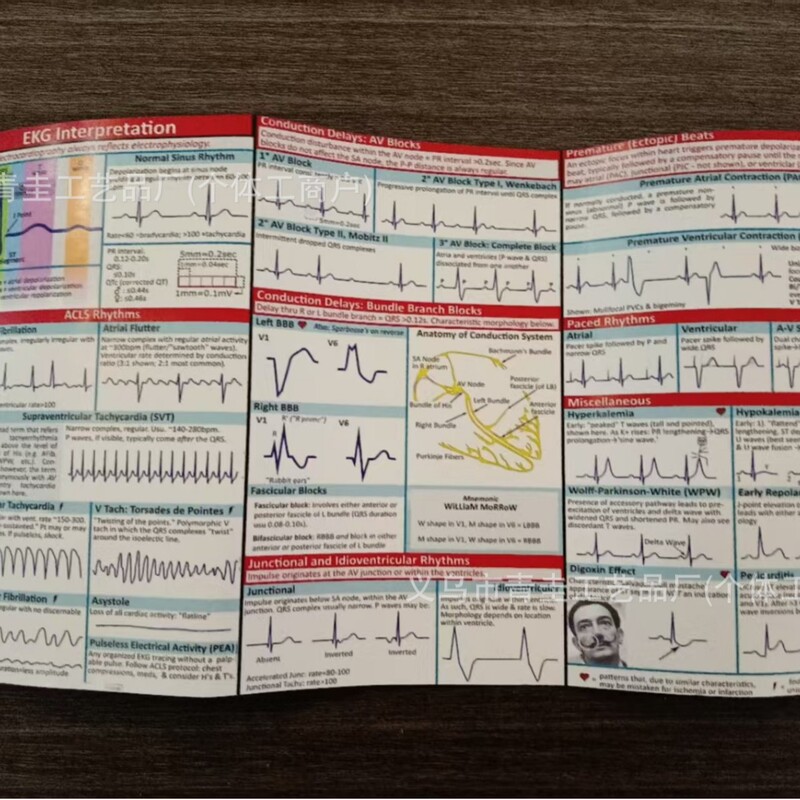 EKG Interpretation
always reflects electrophysiology.
Normal Sinus Rhythm
Depolarization begins at sinus node
Rate<60 =bradycardia; >100 =tachycardia
PR interval:
0.12-0.20s
QRS:
≤0.10s
QTc (corrected QT)
♂ ≤0.44s
♀ ≤0.46s
5mm=0.2sec
1mm=0.04sec
1mm=0.1mV
J Point
= atrial depolarization
= ventricular depolarization
ventricular repolarization
ACLS Rhythms
Fibrillation
irregularly irregular with
Atrial Flutter
Narrow complex with regular atrial activity
at ~300bpm (flutter/"sawtooth" waves).
Ventricular rate determined by conduction
ratio (3:1 shown; 2:1 most common).
rate>100
Supraventricular Tachycardia (SVT)
term that refers
tachyarrhythmia
above the level of
of His (e.g. Afib,
WPW, etc).
however, the term
synonymously with AV
tachycardia
shown here.
Narrow complex, regular. Usu. ~140-280bpm.
P waves, if visible, typically come after the QRS.
Tachycardia
with vent. rate ~150-300.
sustained." Pt may or may
If pulseless, shock.
V Tach: Torsades de Pointes
"Twisting of the points." Polymorphic V
tach in which the QRS complexes "twist"
around the isoelectric line.
Fibrillation
with no discernable
duration=less amplitude
Asystole
Loss of all cardiac activity: "flatline"
Pulseless Electrical Activity (PEA)
Any organized EKG tracing without a palp-
able pulse. Follow ACLS protocol: chest
compressions, meds, & consider H's & T's.
Conduction Delays: AV Blocks
Conduction disturbance within the AV node = PR interval >0.2sec. Since AV
blocks do not affect the SA node, the P-P distance is always regular.
1° AV Block
PR interval
5mm=0.2sec
2° AV Block Type I, Wenkebach
Progressive prolongation of PR interval until QRS complex
2° AV Block Type II, Mobitz II
Intermittent dropped QRS complexes
3° AV Block: Complete Block
Atria and ventricles (P wave & QRS)
dissociated from one another
Conduction Delays: Bundle Branch Blocks
Delay thru R or L bundle branch = QRS >0.12s. Characteristic morphology below.
Left BBB
Also: Sgarbossa's on reverse
V1
V6
Right BBB
V1
R' ("R prime")
R
V6
"Rabbit ears"
Anatomy of Conduction System
SA Node
in R atrium
Bachmann's Bundle
AV Node
Posterior
fascicle (of LB)
Bundle of His
Left Bundle
Anterior
fascicle
Right Bundle
Purkinje Fibers
Fascicular Blocks
Fascicular block: involves either anterior or
posterior fascicle of L bundle (QRS duration
usu 0.08-0.10s).
Bifascicular block: RBBB and block in either
anterior or posterior fascicle of L bundle
Mnemonic
WiLLiaM MoRRoW
W shape in V1, M shape in V6 = LBBB
M shape in V1, W shape in V6 = RBBB
Junctional and Idioventricular Rhythms
Impulse originates at the AV junction or within the ventricles.
Junctional
Impulse originates below SA node, within the AV
junction. QRS complex usually narrow. P waves may be:
Absent
Inverted
Inverted
Accelerated Junc: rate=80-100
Junctional Tachy: rate>100
Idioventricular
As such, QRS is wide & rate is slow.
Morphology depends on location
within ventricle.
Premature (Ectopic) Beats
An ectopic focus within heart triggers premature depolarization
beat, typically followed by a compensatory pause until the
may atrial (PAC), junctional (PJC - not shown), or ventricular
Premature Atrial Contraction (PAC)
If normally conducted, a premature non-
sinus (abnormal) P wave is followed by
narrow QRS, followed by a compensatory
pause.
Premature Ventricular Contraction
Wide
Shown: Multifocal PVCs & bigeminy
Paced Rhythms
Atrial
Pacer spike followed by P and
narrow QRS
Ventricular
Pacer spike followed by
wide QRS
A-V S
Dual
spike
Miscellaneous
Hyperkalemia
Early: "peaked" T waves (tall and pointed),
shown here. As K+ rises: PR lengthening→QRS
prolongation→'sine wave.'
Hypokalemia
Early: 1) "flattened
lengthening, ST
U waves (best seen
& U wave fusion
Wolff-Parkinson-White (WPW)
Presence of accessory pathway leads to pre-
excitation of ventricles and delta wave with
widened QRS and shortened PR. May also see
discordant T waves.
Delta Wave
Early Repolar
J-point elevation
Digoxin Effect
Pericarditis
= patterns that, due to similar characteristics,
may be mistaken for ischemia or infarction
青圭工艺品厂(个体工商户)
义乌市青圭工艺品厂(个体工